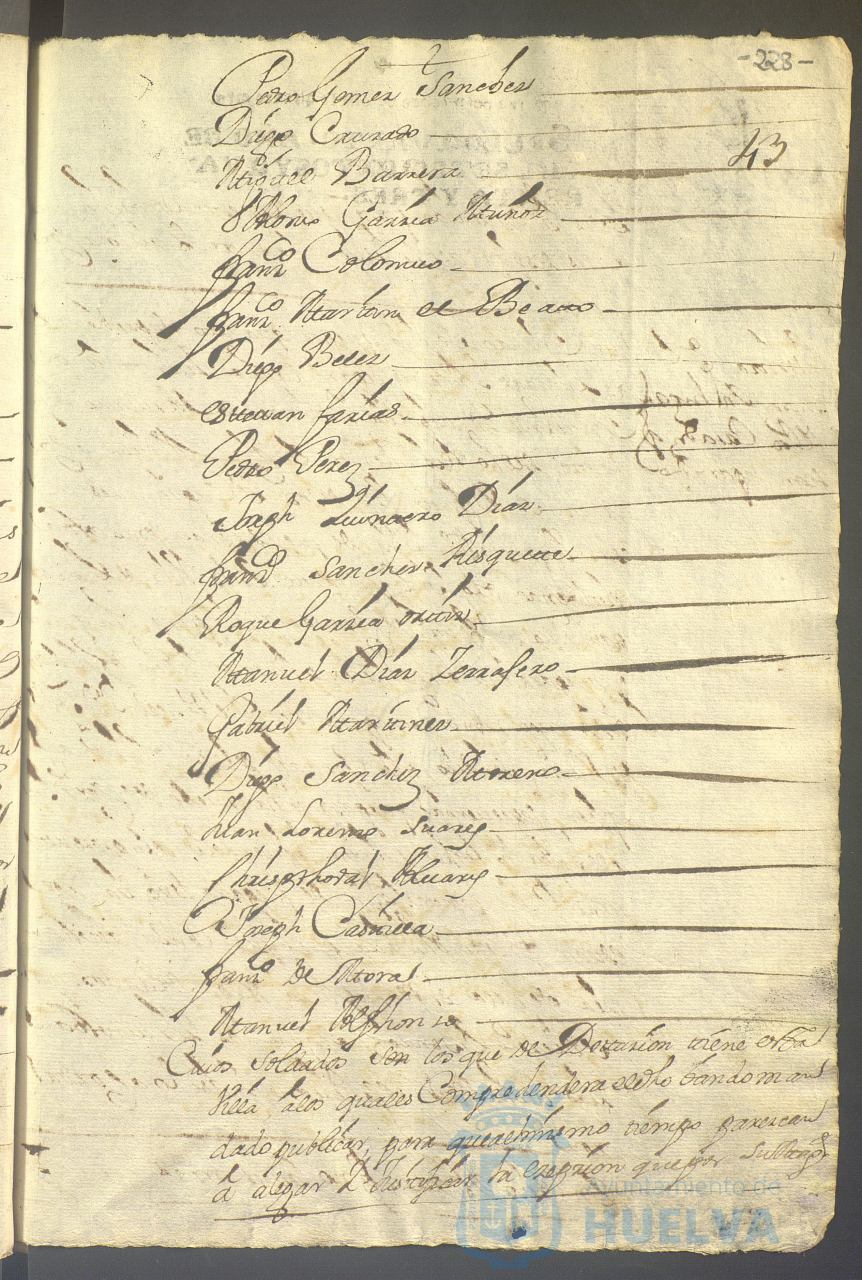 -228-
43
Pedro Gomez Sanchez
Diego Cruzado
Miguel Barrera
Alonso Garzia Muñoz
Franco Colomero
Franco Martin el Beato
Diego Belez
estevan farias
Pedro Perez
Joseph Quintero Diaz
franco Sanchez Risquette
Roque Garzia ortiz
Manuel Diaz Zerrajero
Gabriel Martinez
Diego Sanchez Moreno
Juan Lorenzo Suarez
Chrispthoval Alvarez
Joseph Casilla
franco de Moral
Manuel Alfhonso
Cuios soldados son los que de Dottazion tiene esta
Villa a los quales Comprendera el dho bando man
dado publicar, para que el mismo tiempo parezcan
a alegar i Justificar la exepzion que por
Ayuntamiento de
HUELVA